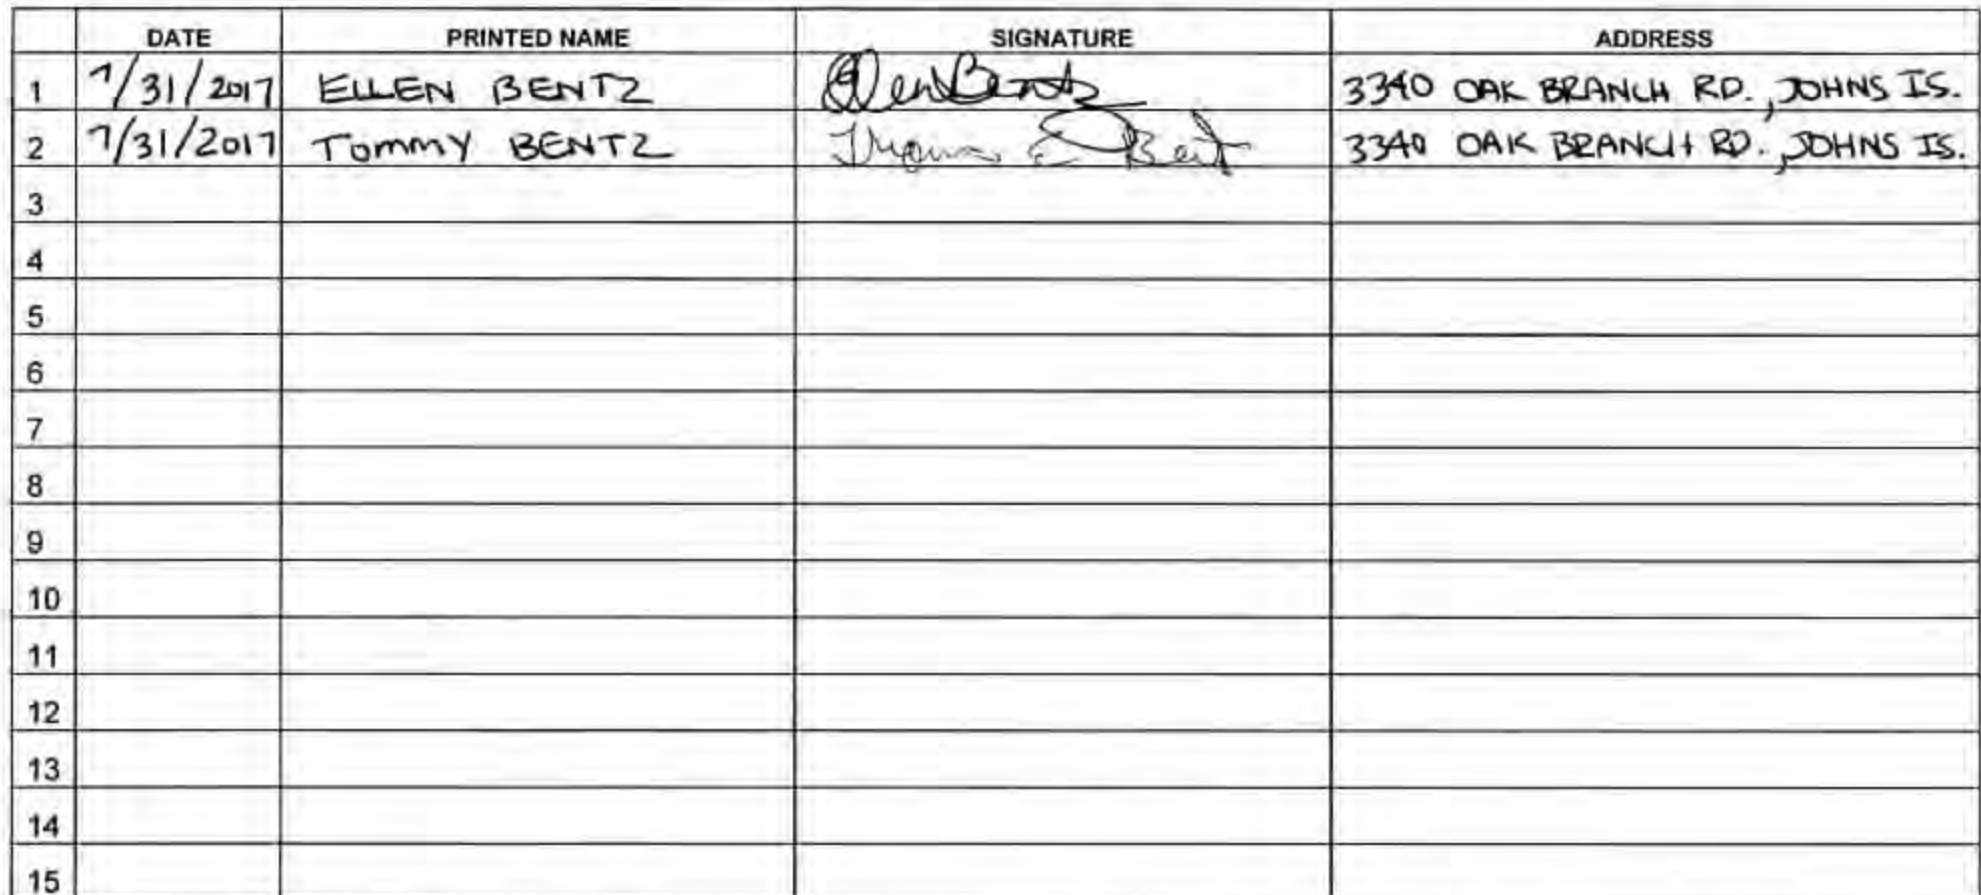 DATE PRINTED NAME SIGNATURE ADDRESS
1 7/31/2017 ELLEN BENTZ Ellen Bentz 3340 OAK BRANCH RD., JOHNS IS.
2 7/31/2017 Tommy BENTZ Thomas E Bentz 3340 OAK BRANCH RD., JOHNS IS.
3
4
5
6
7
8
9
10
11
12
13
14
15